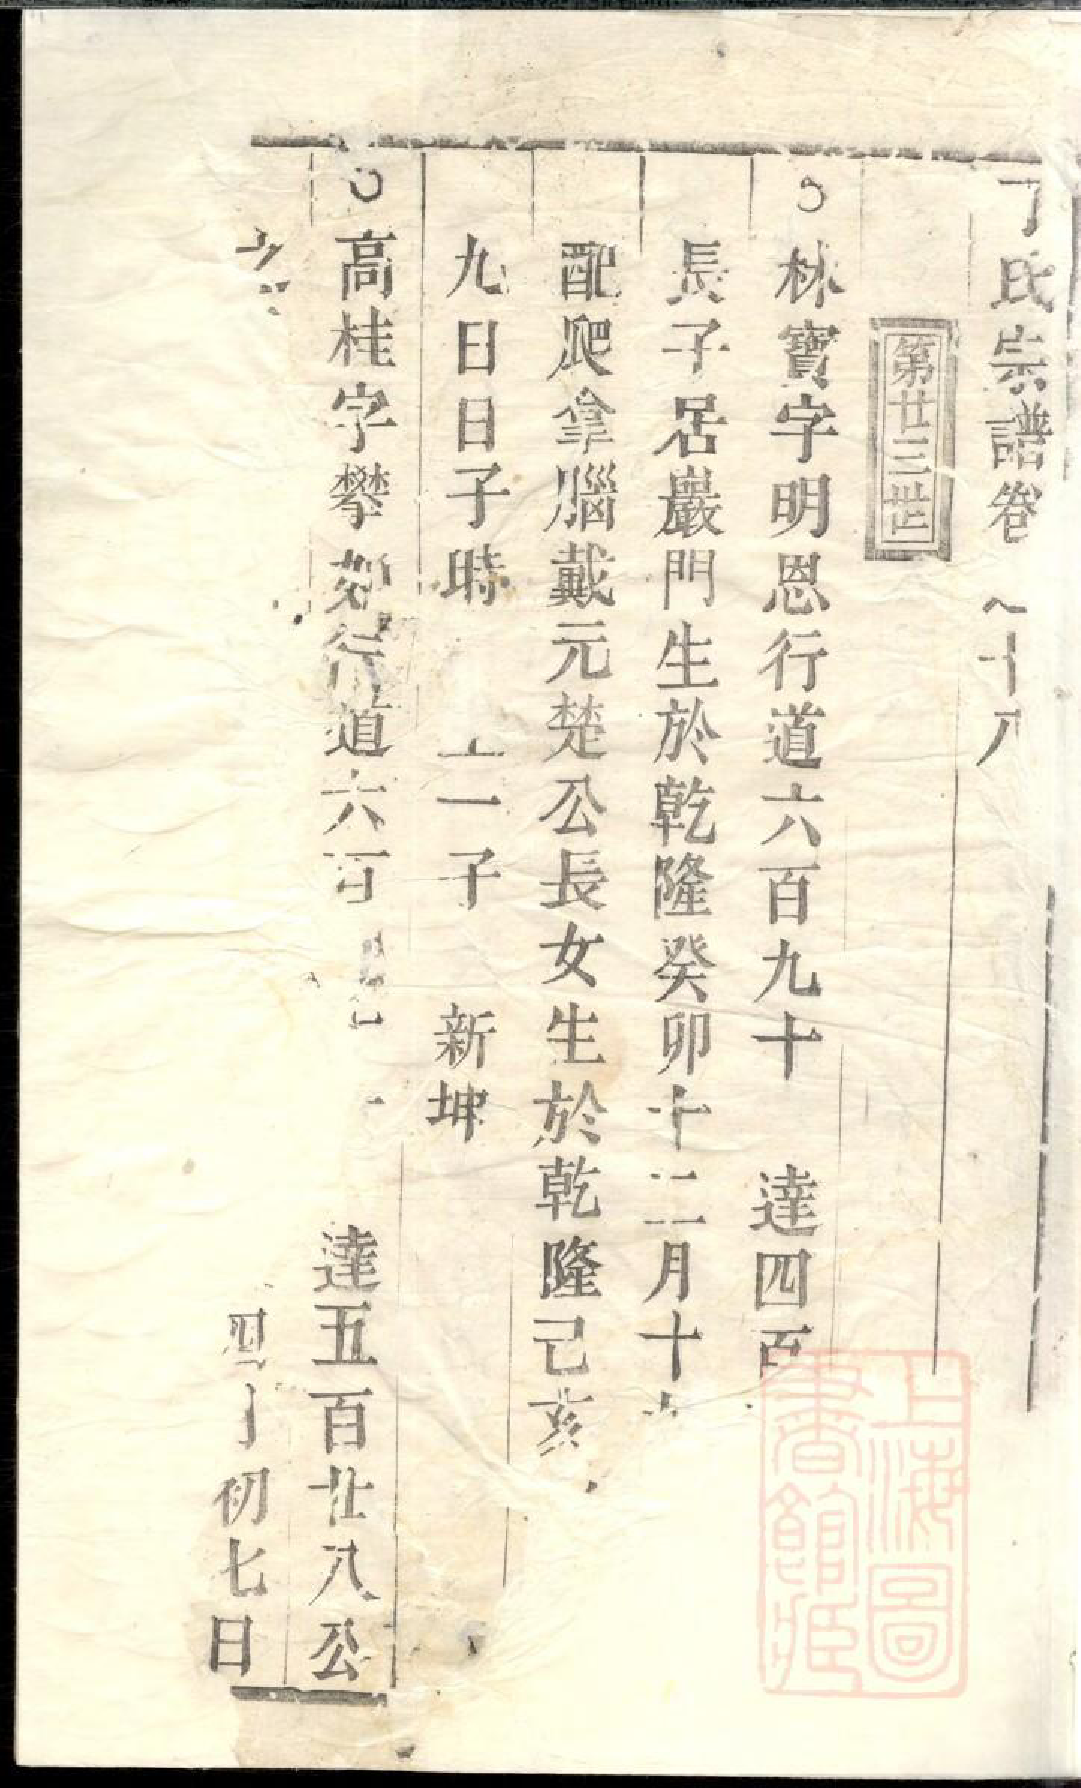 丁氏宗譜卷 十八
第廿三世
林寶字明恩行道六百九十 達四百
長子居巖門生於乾隆癸卯十二月十
配爬拿腦戴元楚公長女生於乾隆己亥
九日日子時 一子 新坤
高桂字攀 行道六百 達五百廿八公
初七日
上海圖書館藏